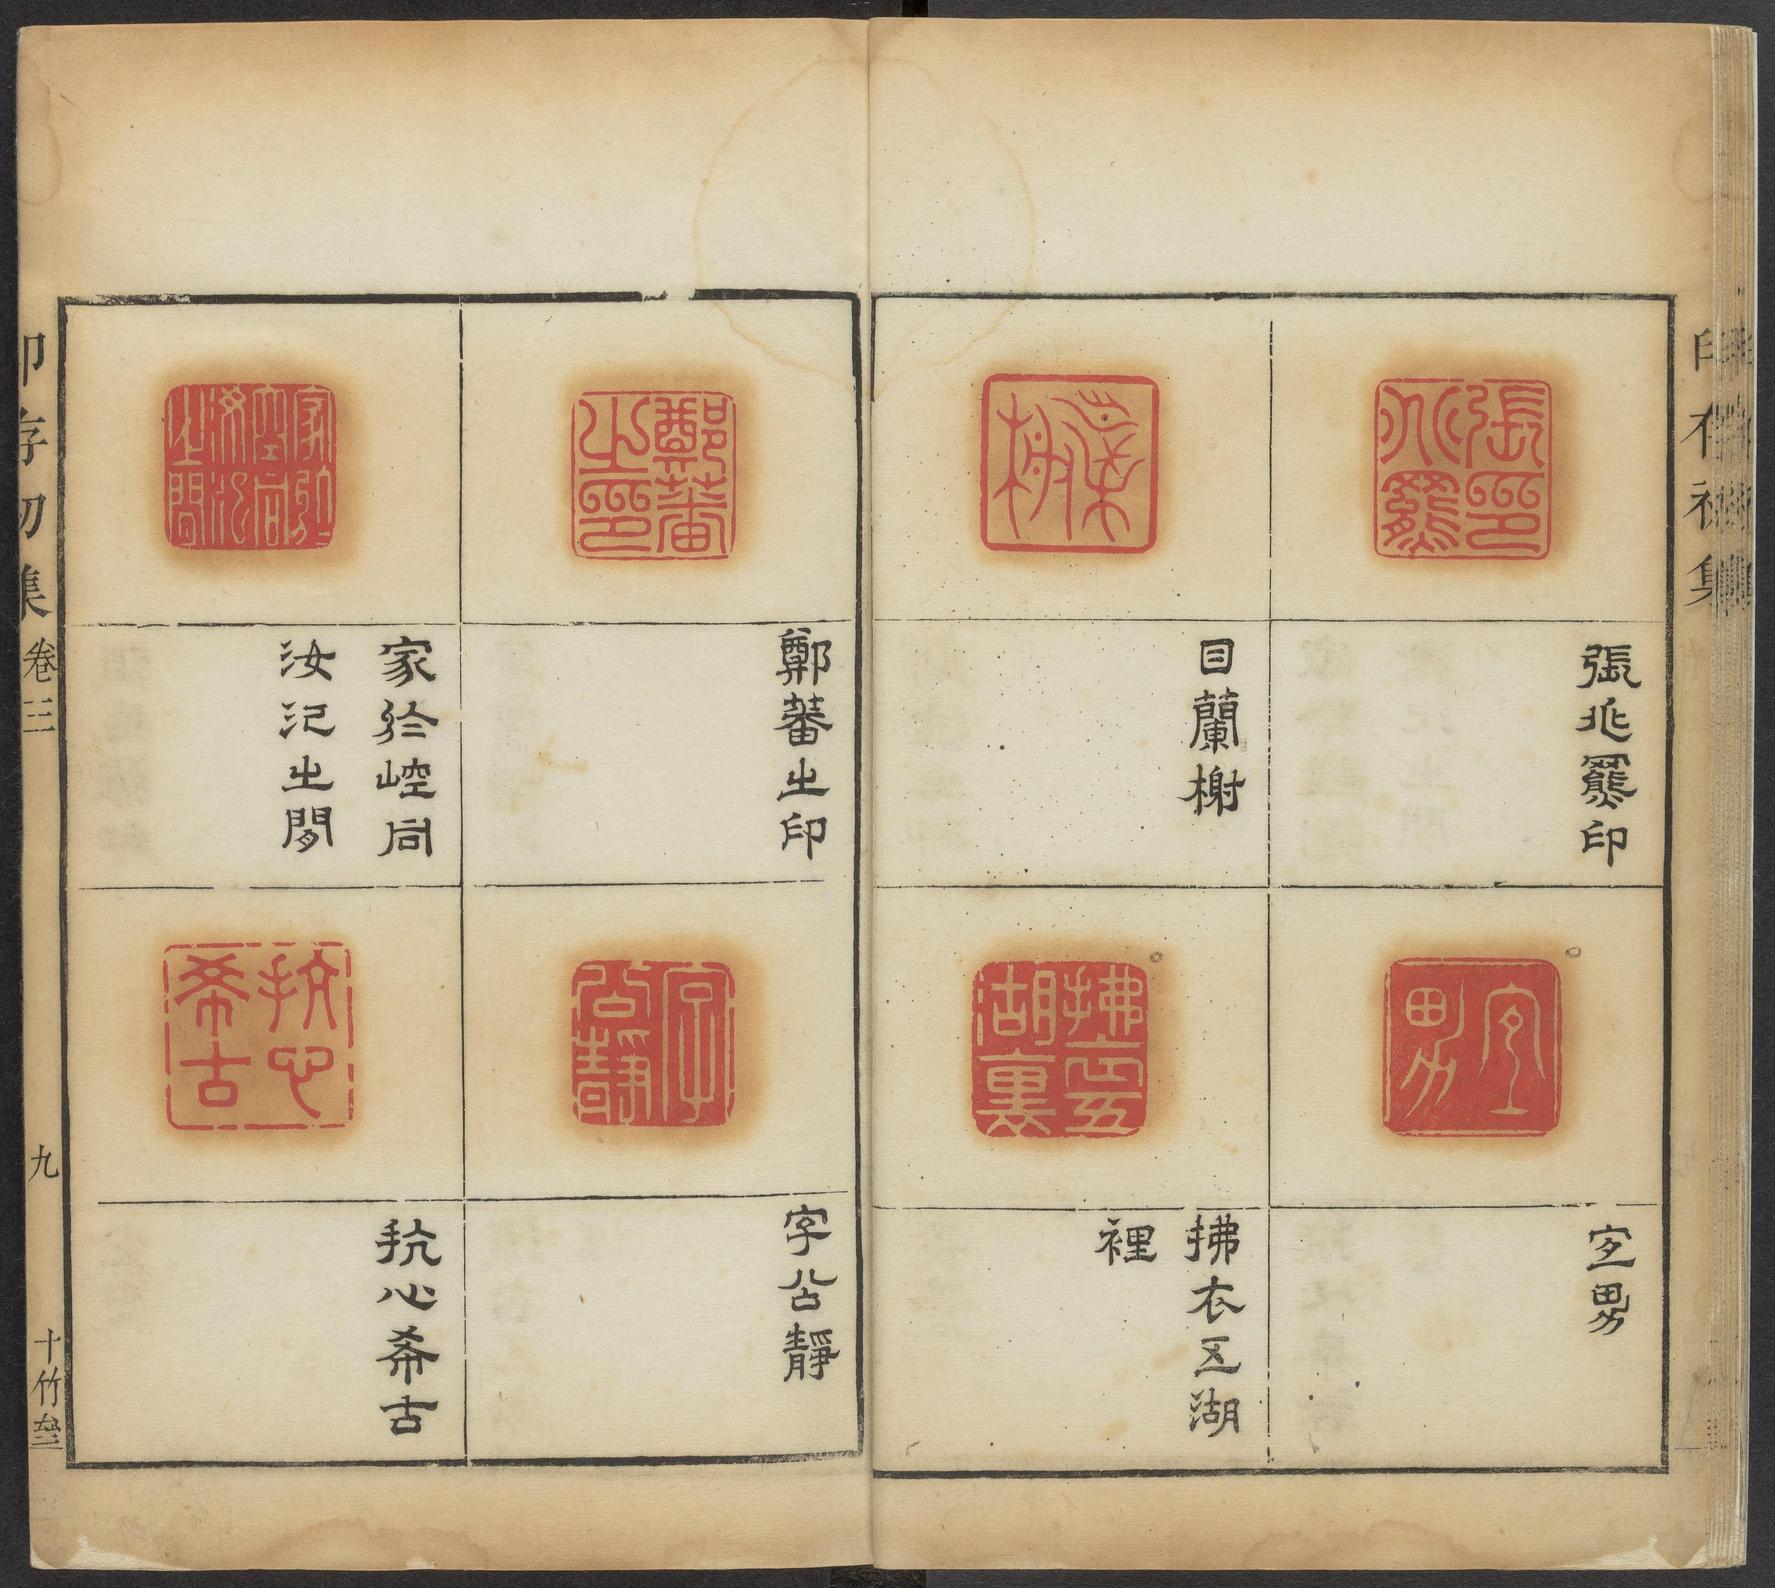 印存初集
張兆羆印
目蘭榭
宜男
拂衣五湖
裡
鄭蕃之印
家於崆同
汝汜之間
字公靜
抗心希古
印存初集
卷三
九
十竹斎